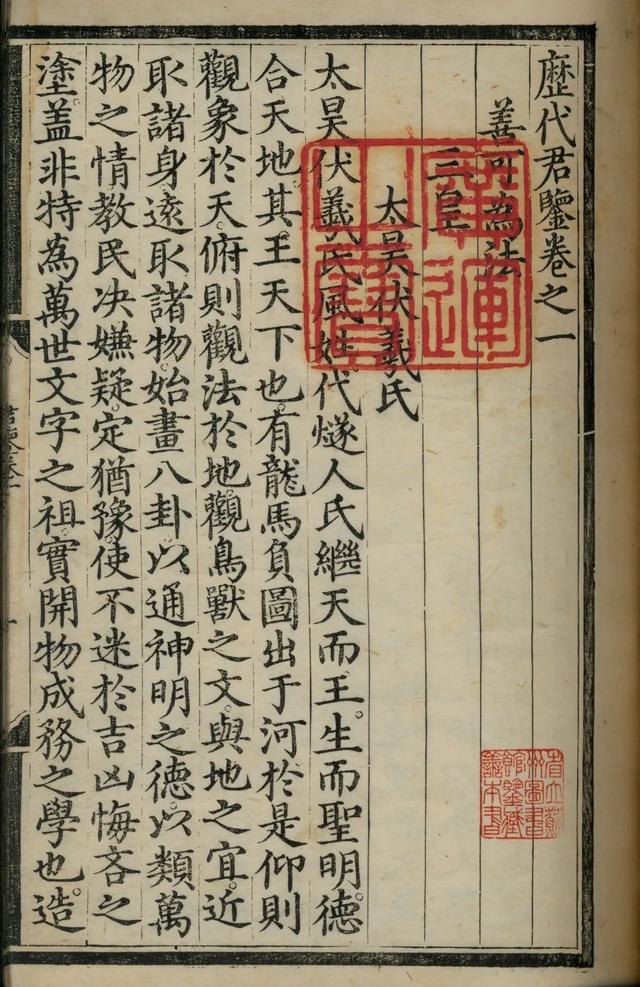 歷代君鑒卷之一
善可為法
三皇
太昊伏羲氏
太昊伏羲氏風姓代燧人氏繼天而王。生而聖明。德
合天地。其王天下也。有龍馬負圖出于河。於是仰則
觀象於天。俯則觀法於地。觀鳥獸之文。與地之宜。近
取諸身。遠取諸物。始畫八卦。以通神明之德。以類萬
物之情。教民決嫌疑。定猶豫。使不迷於吉凶悔吝之
塗。蓋非特為萬世文字之祖。實開物成務之學也。造